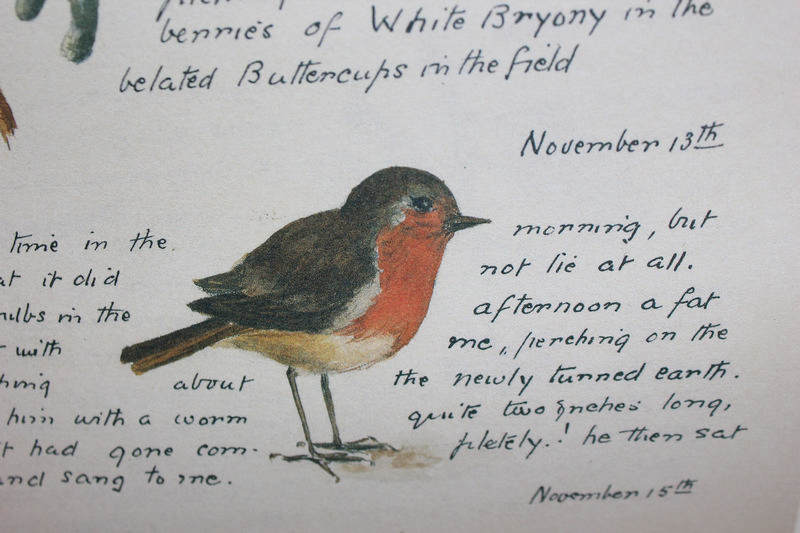 berries of White Bryony in the
belated Buttercups in the field
November 13th
time in the morning, but
it did not lie at all.
in the afternoon a fat
with me, perching on the
about the newly turned earth.
him with a worm quite two inches long,
had gone com- pletely.! he then sat
and sang to me.
November 15th